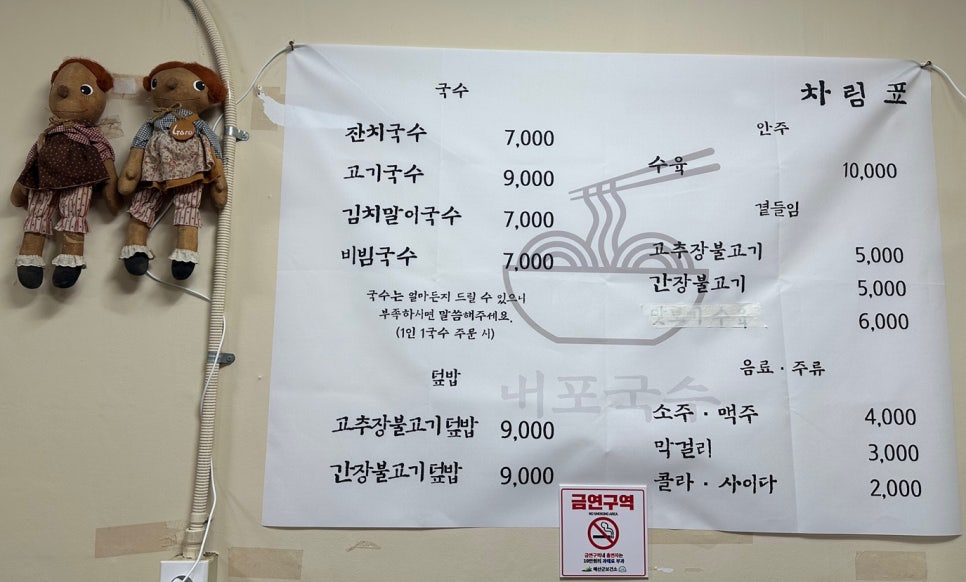 차림표
국수
잔치국수 7,000
고기국수 9,000
김치말이국수 7,000
비빔국수 7,000
국수는 얼마든지 드릴 수 있으니
부족하시면 말씀해주세요.
(1인 1국수 주문 시)
덮밥
고추장불고기덮밥 9,000
간장불고기덮밥 9,000
안주
수육 10,000
곁들임
고추장불고기 5,000
간장불고기 5,000
맛보기 수육 6,000
음료 · 주류
소주 · 맥주 4,000
막걸리 3,000
콜라 · 사이다 2,000
내포국수
금연구역
NO SMOKING AREA
금연구역내 흡연자는
10만원의 과태료 부과
예산군보건소